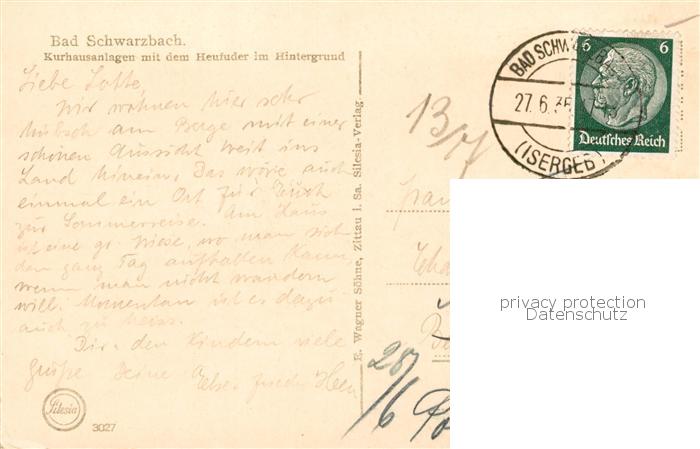 Bad Schwarzbach.
Kurhausanlagen mit dem Heufuder im Hintergrund
Liebe Lotte,
Wir wohnen hier sehr
hübsch am Berge mit einer
schönen Aussicht weit ins
Land hinein. Das wäre auch
einmal ein Ort für Euch
zur Sommerreise. Am Haus
ist eine gr. Wiese, wo man sich
den ganz Tag aufhalten kann,
wenn man nicht wandern
will. Momentan ist es dazu
auch zu heiss.
Dir u. den Kindern viele
Grüße Deine
Silesia
3027
E. Wagner Söhne, Zittau i. Sa. Silesia-Verlag
BAD SCHW
27. 6. 35
(ISERGEB
6 6
Deutsches Reich
13/7
287
/6
privacy protection
Datenschutz